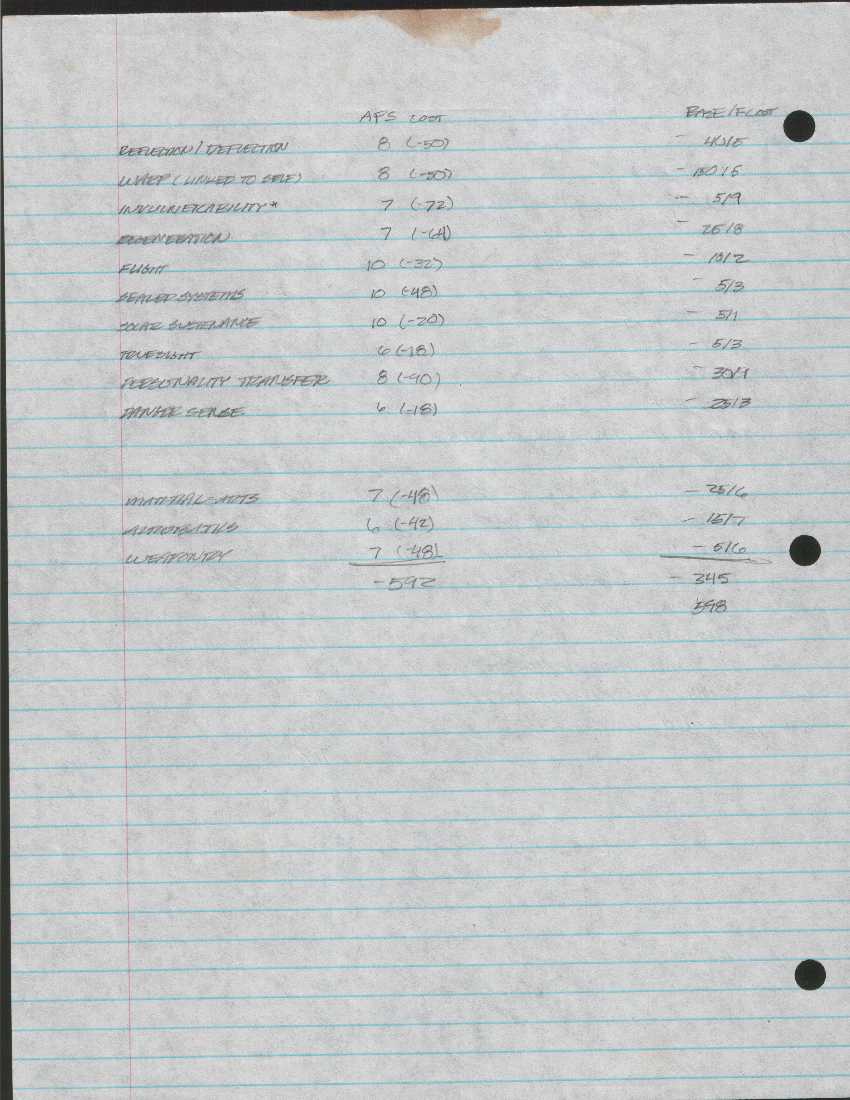 APS COST BASE/FCOST
REFLECTION/DEFLECTION 8 (-50) - 40/5
WARP (LINKED TO SELF) 8 (-50) - 150/5
INVULNERABILITY* 7 (-72) - 5/9
REGENERATION 7 (-64) - 25/8
FLIGHT 10 (-32) - 10/2
SEALED SYSTEMS 10 (-48) - 5/3
SOLAR SUSTENANCE 10 (-20) - 5/1
TRUESIGHT 6 (-18) - 5/3
PERSONALITY TRANSFER 8 (-40) - 30/4
DANGER SENSE 6 (-18) - 25/3
MARTIAL-ARTS 7 (-48) - 25/6
ACROBATICS 6 (-42) - 15/7
WEAPONRY 7 (-48) - 5/6
-592 - 345
598